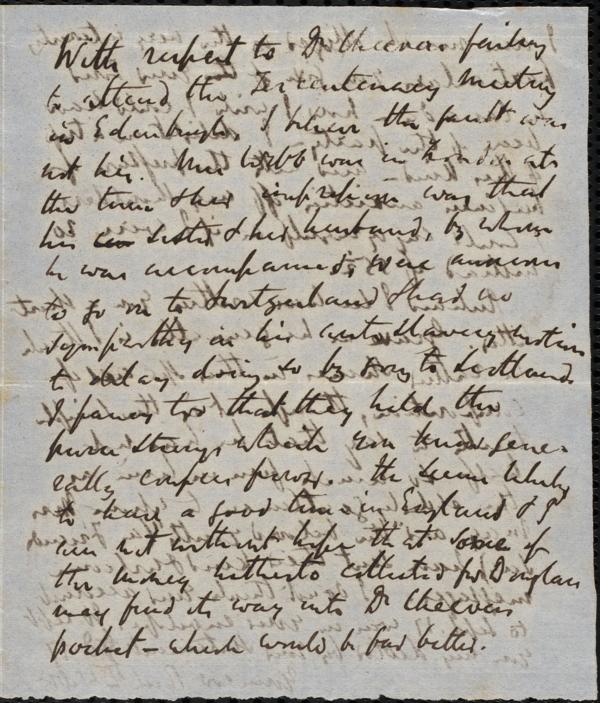 With respect to Dr Cheever failing
to attend the Tercentenary Meeting
in Edinburgh, I believe the fault was
not his. Mr Webb was in London at
the time & his impression was that
his sister & her husband, by whom
he was accompanied, were anxious
to go on to Switzerland & had no
sympathy in his anti-slavery motions
to delay doing so by going to Scotland.
I fancy too that they held the
purse strings which you know gene-
rally confers power. He seems likely
to have a good time in England & I
am not without hope that some of
the money hitherto collected for Douglass
may find its way into Dr Cheever's
pocket - which would be far better.